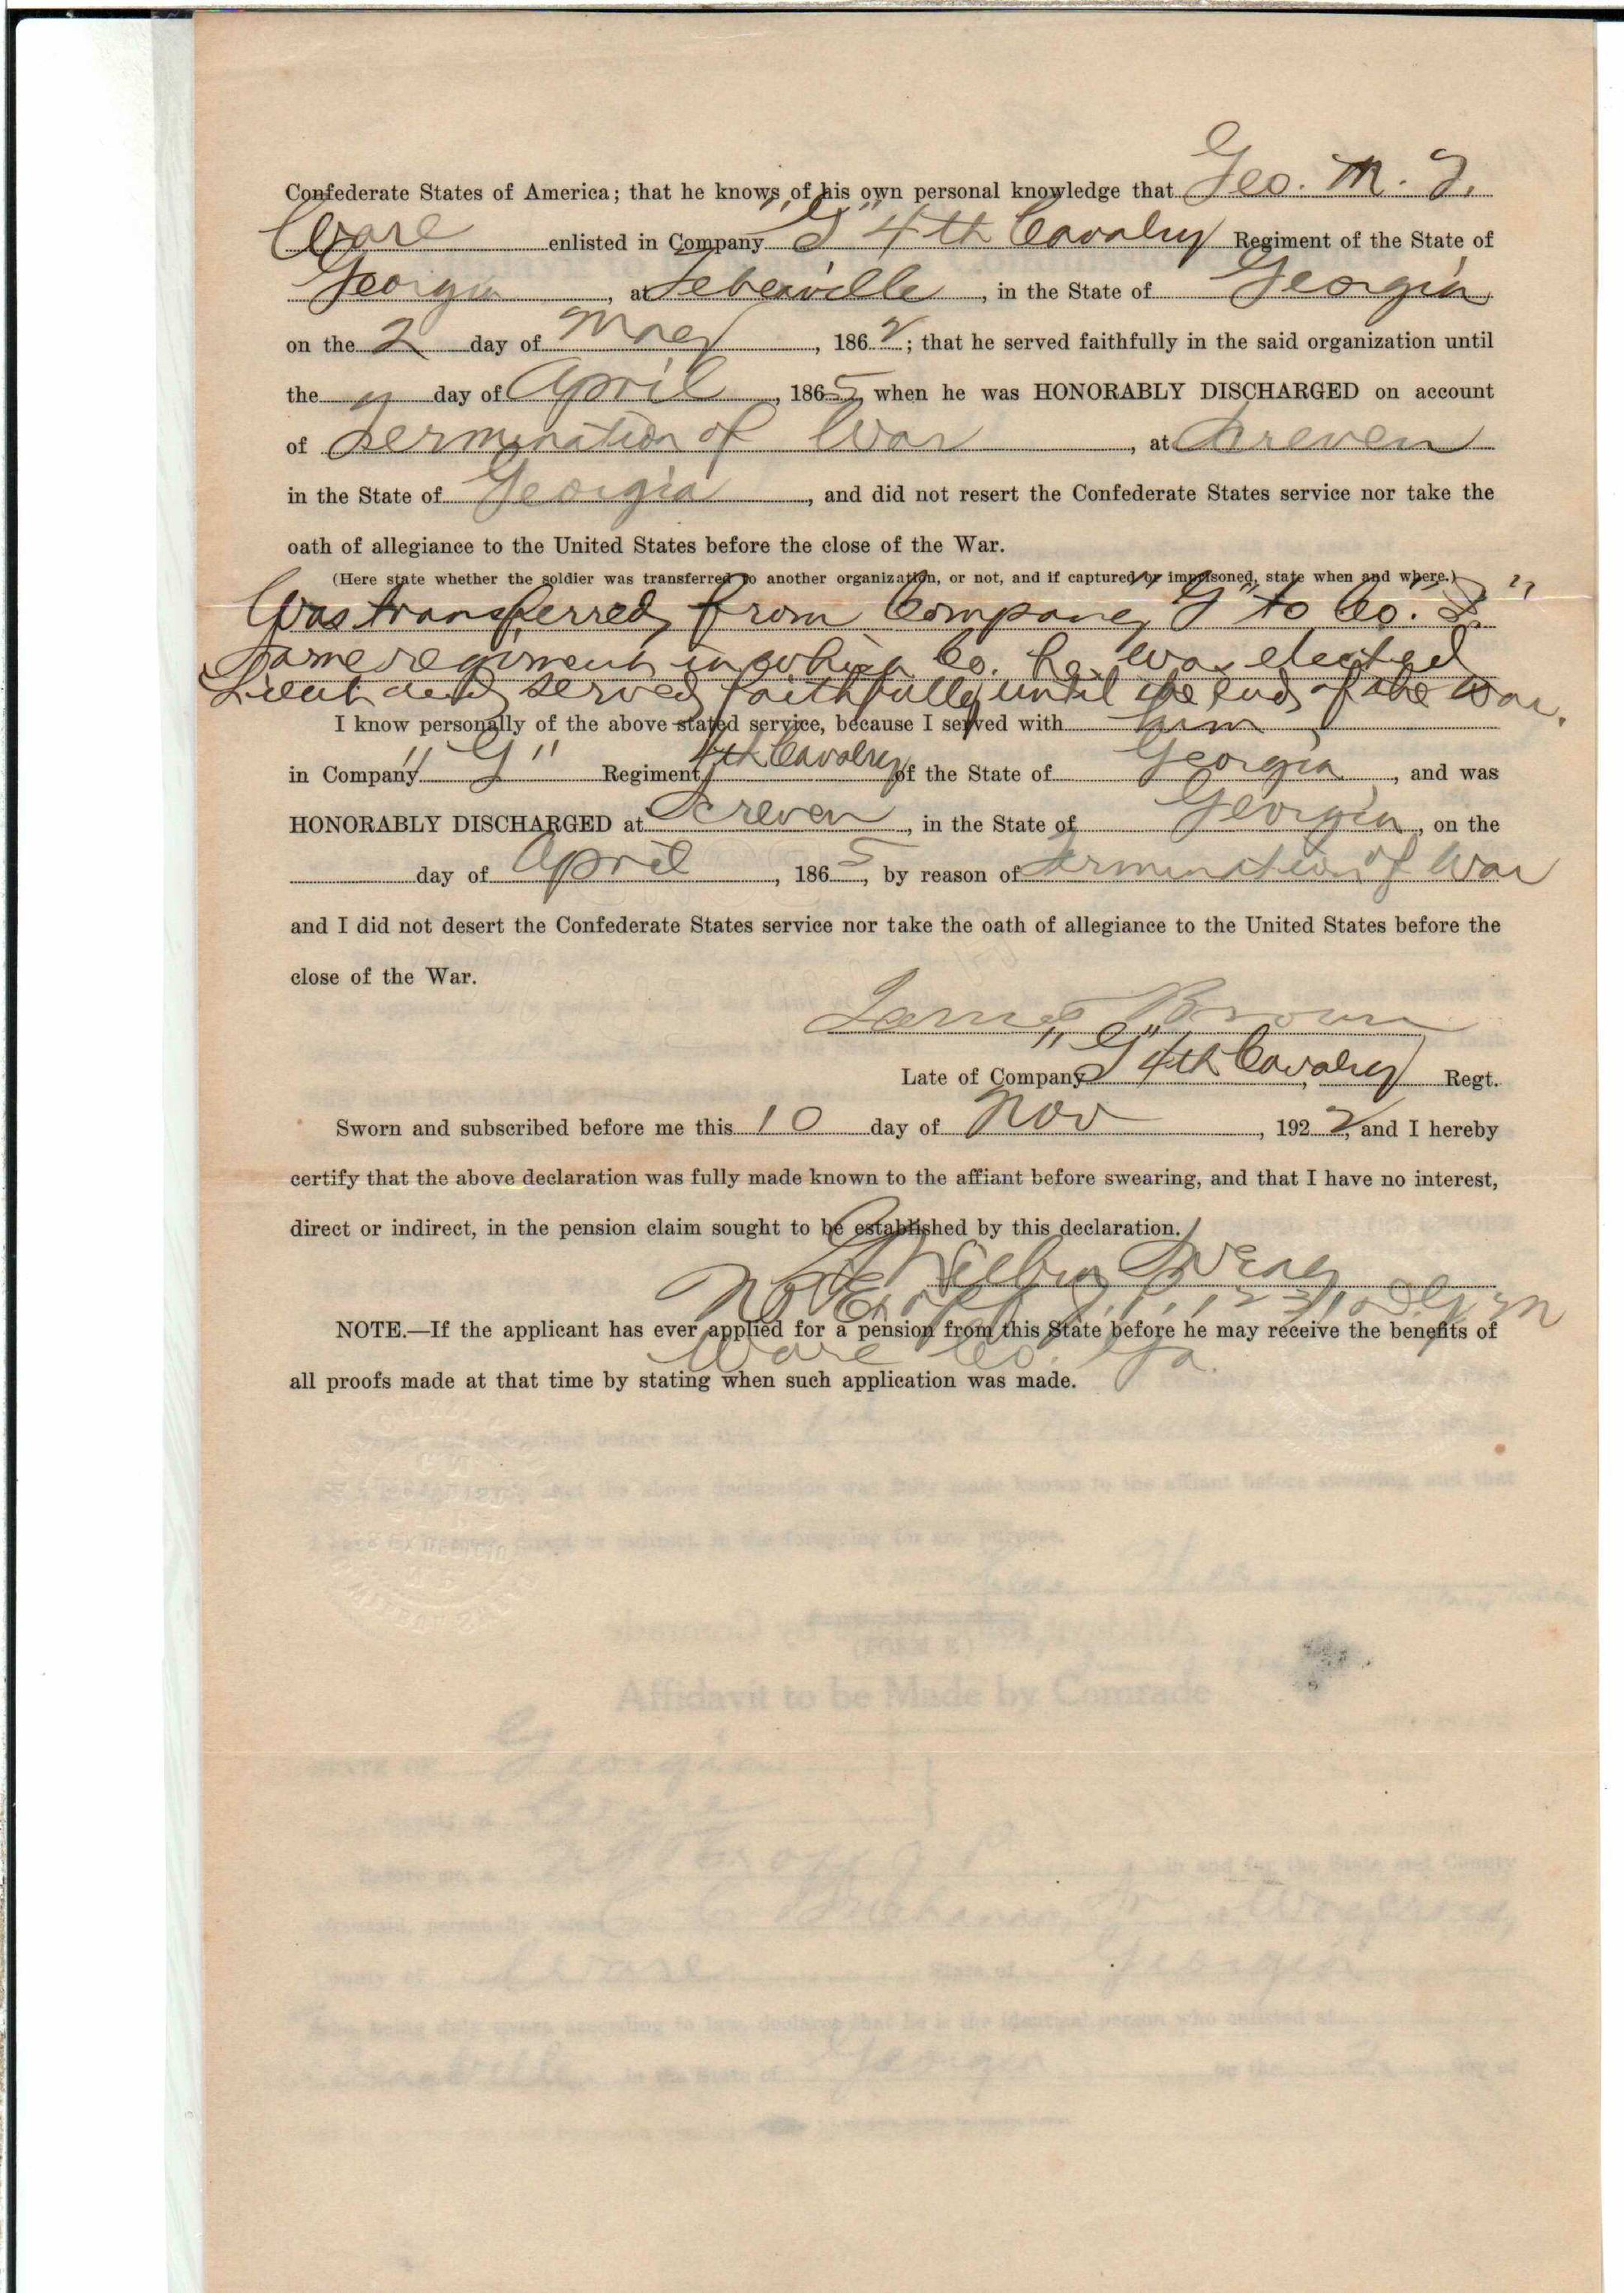 Confederate States of America; that he knows of his own personal knowledge that Geo. M. T.
Ware enlisted in Company "G" 4th Cavalry Regiment of the State of
Georgia, at Tebeauville, in the State of Georgia
on the 2 day of May, 1862; that he served faithfully in the said organization until
the day of April, 1865, when he was HONORABLY DISCHARGED on account
of termination of War, at Screven
in the State of Georgia, and did not resert the Confederate States service nor take the
oath of allegiance to the United States before the close of the War.
(Here state whether the soldier was transferred to another organization, or not, and if captured or imprisoned, state when and where.)
Was transferred from Company "G" to Co.
same regiment in which Co. he was elected
Lieut and served faithfully until the end of the War.
I know personally of the above stated service, because I served with him
in Company "G" Regiment 4th Cavalry of the State of Georgia, and was
HONORABLY DISCHARGED at Screven, in the State of Georgia, on the
day of April, 1865, by reason of termination of War
and I did not desert the Confederate States service nor take the oath of allegiance to the United States before the
close of the War.
James Brown
Late of Company "G" 4th Cavalry Regt.
Sworn and subscribed before me this 10 day of Nov, 1922, and I hereby
certify that the above declaration was fully made known to the affiant before swearing, and that I have no interest,
direct or indirect, in the pension claim sought to be established by this declaration.
NOTE.—If the applicant has ever applied for a pension from this State before he may receive the benefits of
Ware Co. Ga.
all proofs made at that time by stating when such application was made.
Affidavit to be Made by Comrade